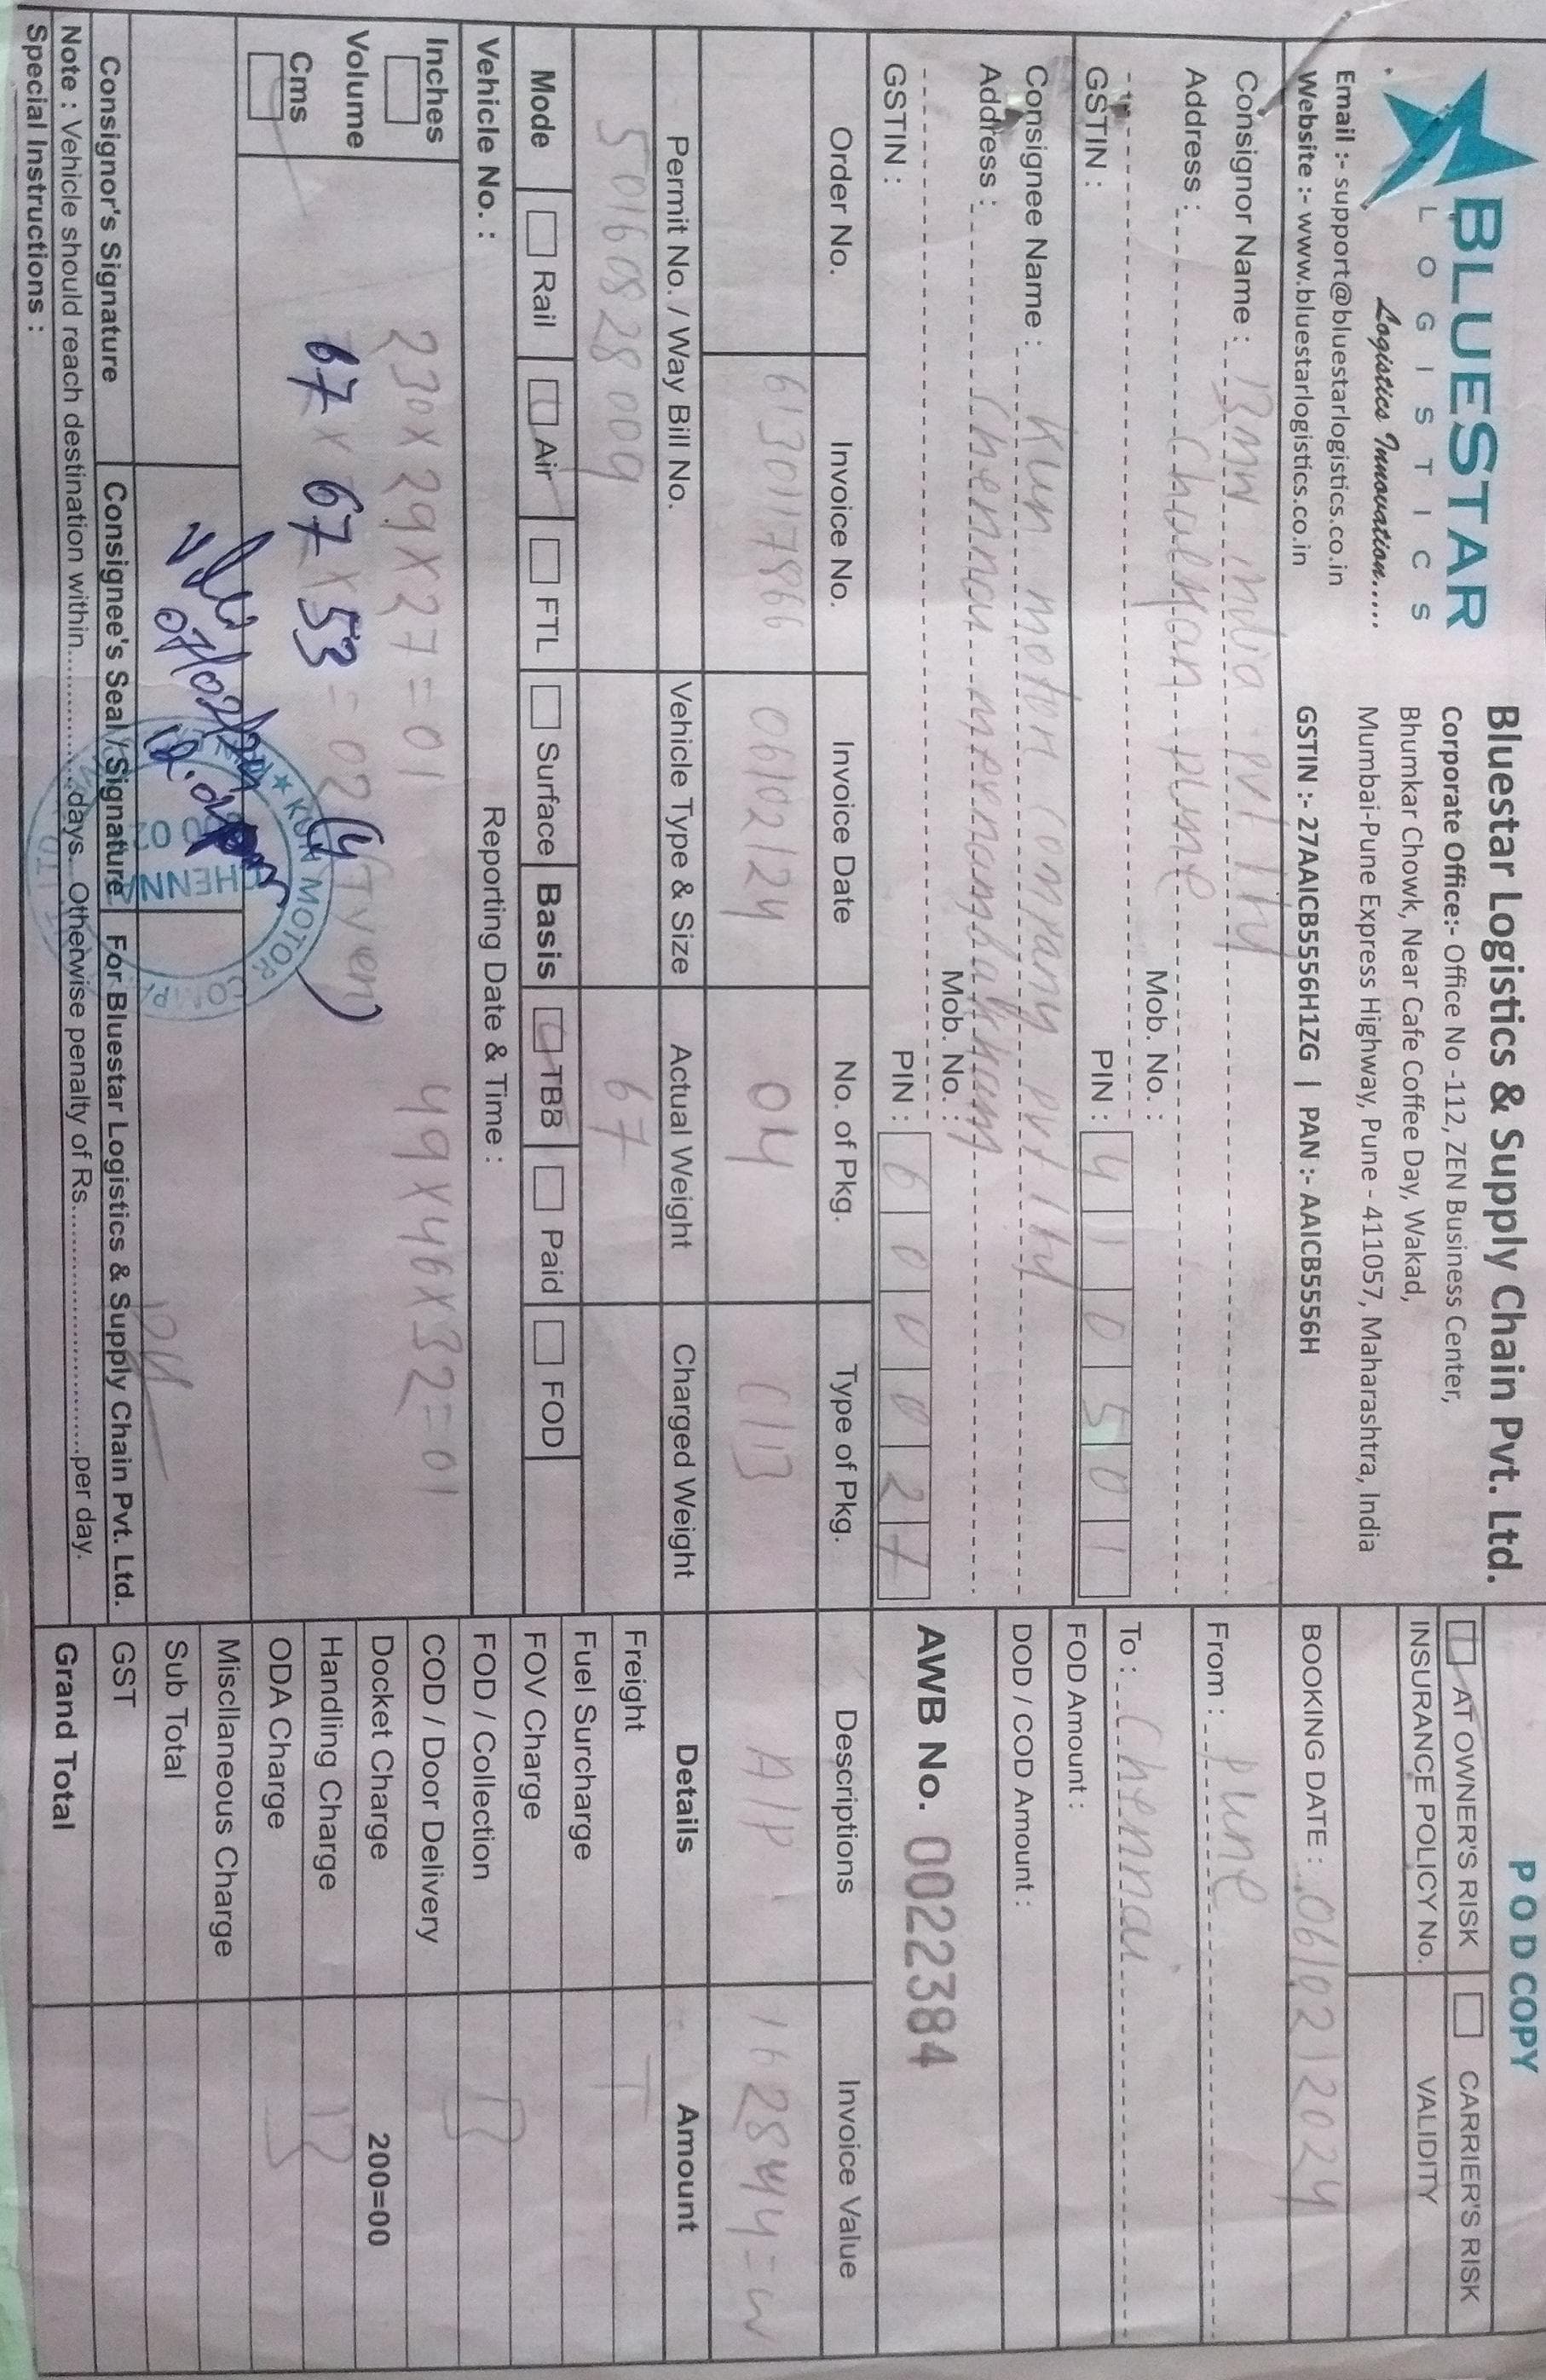 BLUESTAR
LOGISTICS
Logistics Innovation.....
Email :- support@bluestarlogistics.co.in
Website :- www.bluestarlogistics.co.in
Bluestar Logistics & Supply Chain Pvt. Ltd.
Corporate Office:- Office No -112, ZEN Business Center,
Bhumkar Chowk, Near Cafe Coffee Day, Wakad,
Mumbai-Pune Express Highway, Pune - 411057, Maharashtra, India
GSTIN :- 27AAICB5556H1ZG | PAN :- AAICB5556H
POD COPY
AT OWNER'S RISK CARRIER'S RISK
INSURANCE POLICY No. VALIDITY
BOOKING DATE : 06/02/2024
Consignor Name : BMW india pvt ltd
Address : Chakan pune
Mob. No. :
GSTIN : PIN : 4 1 0 5 0 1
From : pune
To : Chennai
FOD Amount :
DOD / COD Amount :
Consignee Name : Kun motor company pvt ltd
Address : Chennai meenambakkam
Mob. No. :
GSTIN : PIN : 6 0 0 0 2 7
AWB No. 0022384
Order No. Invoice No. Invoice Date No. of Pkg. Type of Pkg. Descriptions Invoice Value
6130117866 06/02/24 04 C/B A/P 162844=
Permit No. / Way Bill No. Vehicle Type & Size Actual Weight Charged Weight Details Amount
50160828009 67
Freight T
Fuel Surcharge
FOV Charge
FOD / Collection B
COD / Door Delivery
Docket Charge 200=00
Handling Charge B
ODA Charge
Miscllaneous Charge
Sub Total
GST
Grand Total
Mode Rail Air FTL Surface Basis TBB Paid FOD
Vehicle No. : Reporting Date & Time :
Inches
Volume
Cms
230x29x27=01 49x46x32=01
67 x 67 x 53 = 02 (4 Tyer)
07/02/24
KUN MOTOR COMPANY PVT. LTD.
CHENNAI
Consignor's Signature Consignee's Seal / Signature For Bluestar Logistics & Supply Chain Pvt. Ltd.
Note : Vehicle should reach destination within...............days. Otherwise penalty of Rs............................per day.
Special Instructions :